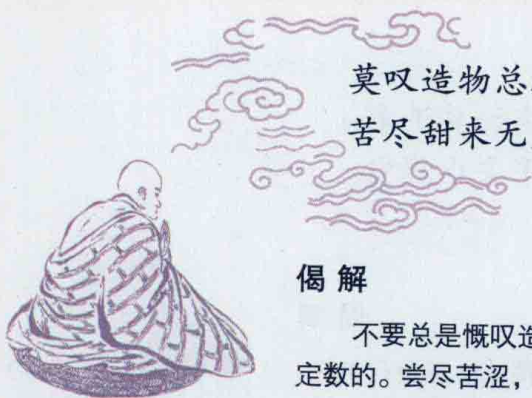 莫叹造物总
苦尽甜来无
偈解
不要总是慨叹造
定数的。尝尽苦涩，